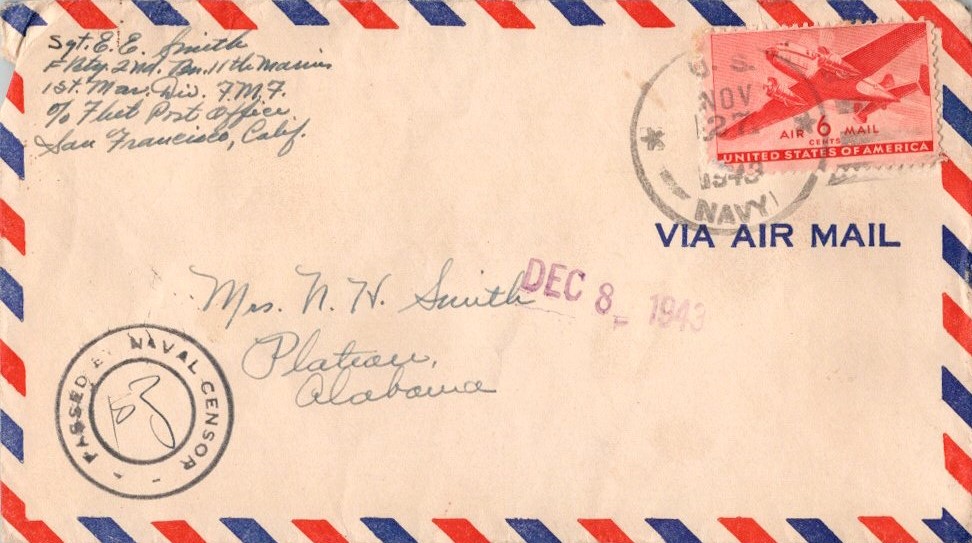 Sgt. E. E. Smith
F Bty. 2nd. Bn. 11th Marines
1st. Mar. Div. F.M.F.
c/o Fleet Post Office
San Francisco, Calif.
U. S.
NOV
27
1943
NAVY
AIR 6 MAIL
CENTS
UNITED STATES OF AMERICA
VIA AIR MAIL
DEC 8 1943
Mrs. N. H. Smith
Plateau,
Alabama
PASSED BY NAVAL CENSOR